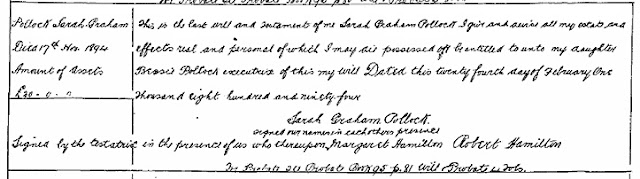 Pollock Sarah Graham This is the last will and testament of me Sarah Graham Pollock I give and devise all my estate and
Died 17th Nov. 1894 effects real and personal of which I may die possessed of or entitled to unto my daughter
Amount of assets Bessie Pollock executrix of this my will Dated this twenty fourth day of February One
£20-0-0 thousand eight hundred and ninety four
Sarah Graham Pollock
signed our names in each others presence
Signed by the testatrix in the presence of us who thereupon, Margaret Hamilton Robert Hamilton
For Probate see Probate Book 95 p. 81 Will Probate